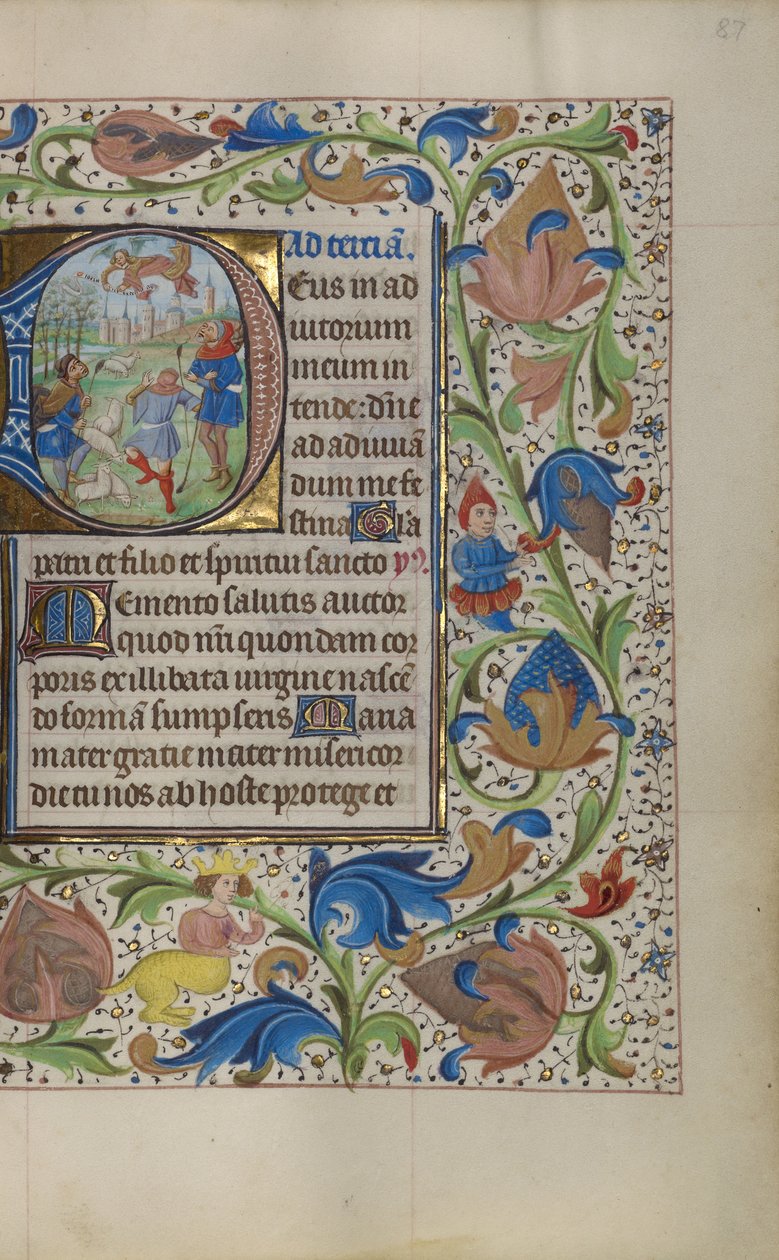 87
Ad terciā.
Eus in ad
iutorium
meum in
tende: dn̄e
ad adiuuā
dum me fe
stina Gl̄a
patri et filio et spiritui sancto
Memento salutis auctor
quod nr̄i quondam cor
poris ex illibata uirgine nascē
do formā sumpseris Maria
mater gratie mater misericor
die tu nos ab hoste protege et